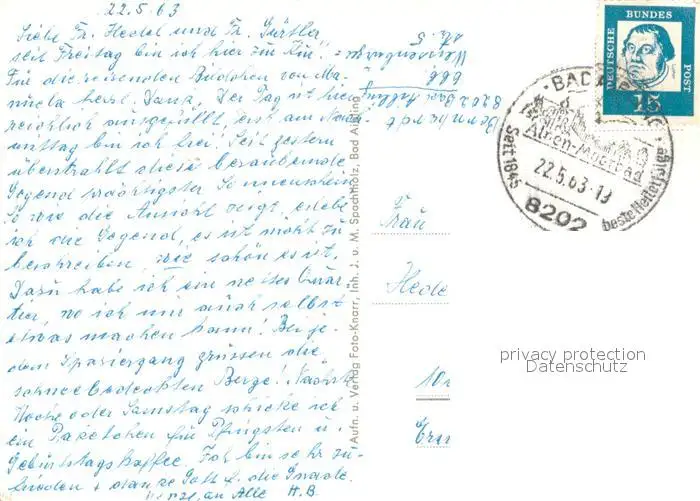 22.5.63
Liebe Fr. Heckel und Fr. Gürtler
seit Freitag bin ich hier zur Kur.
Für die reizenden Bildchen von Ma-
nuela herzl. Dank. Der Tag ist hier
reichlich ausgefüllt, erst am Nach-
mittag bin ich frei. Seit gestern
überstrahlt diese bezaubernde
Gegend prächtigster Sonnenschein
So wie die Ansicht zeigt, erlebe
ich die Gegend, es ist nicht zu
beschreiben, wie schön es ist.
Dazu habe ich ein nettes Quar-
tier, wo ich mir auch selbst
etwas machen kann. Bei je-
dem Spaziergang grüssen die
schneebedeckten Berge! Nächste
Woche oder Samstag schicke ich
ein Paketchen für Pfingsten u.
Geburtstagskaffee. Ich bin sehr zu-
frieden + danke Gott f. die Gnade.
an Alle H.B.
8202 Bad
Aufn. u. Verlag Foto-Knarr, Inh. J. u. M. Spachtholz, Bad Aibling
DEUTSCHE BUNDES POST
15
BAD AIBLING
Seit 1845
22.5.63-19
8202
beste Heilerfolge
Frau
privacy protection
Datenschutz